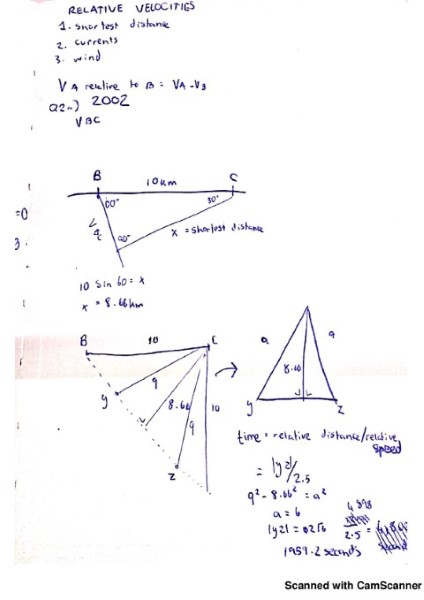 RELATIVE VELOCITIES
1. shortest distance
2. currents
3. wind
VA relative to B = VA - VB
Q2a) 2002
VBC
B 10km C
60° 30°
90°
x = shortest distance
=0
3.
10 sin 60 = x
x = 8.66km
B 10 C
9
y 8.66 10
9
z
a 9
8.66
y z
time = relative distance/relative speed
= |yz|/2.5
9² - 8.66² = a²
a = 6
2.5 =
1959.2 seconds
Scanned with CamScanner